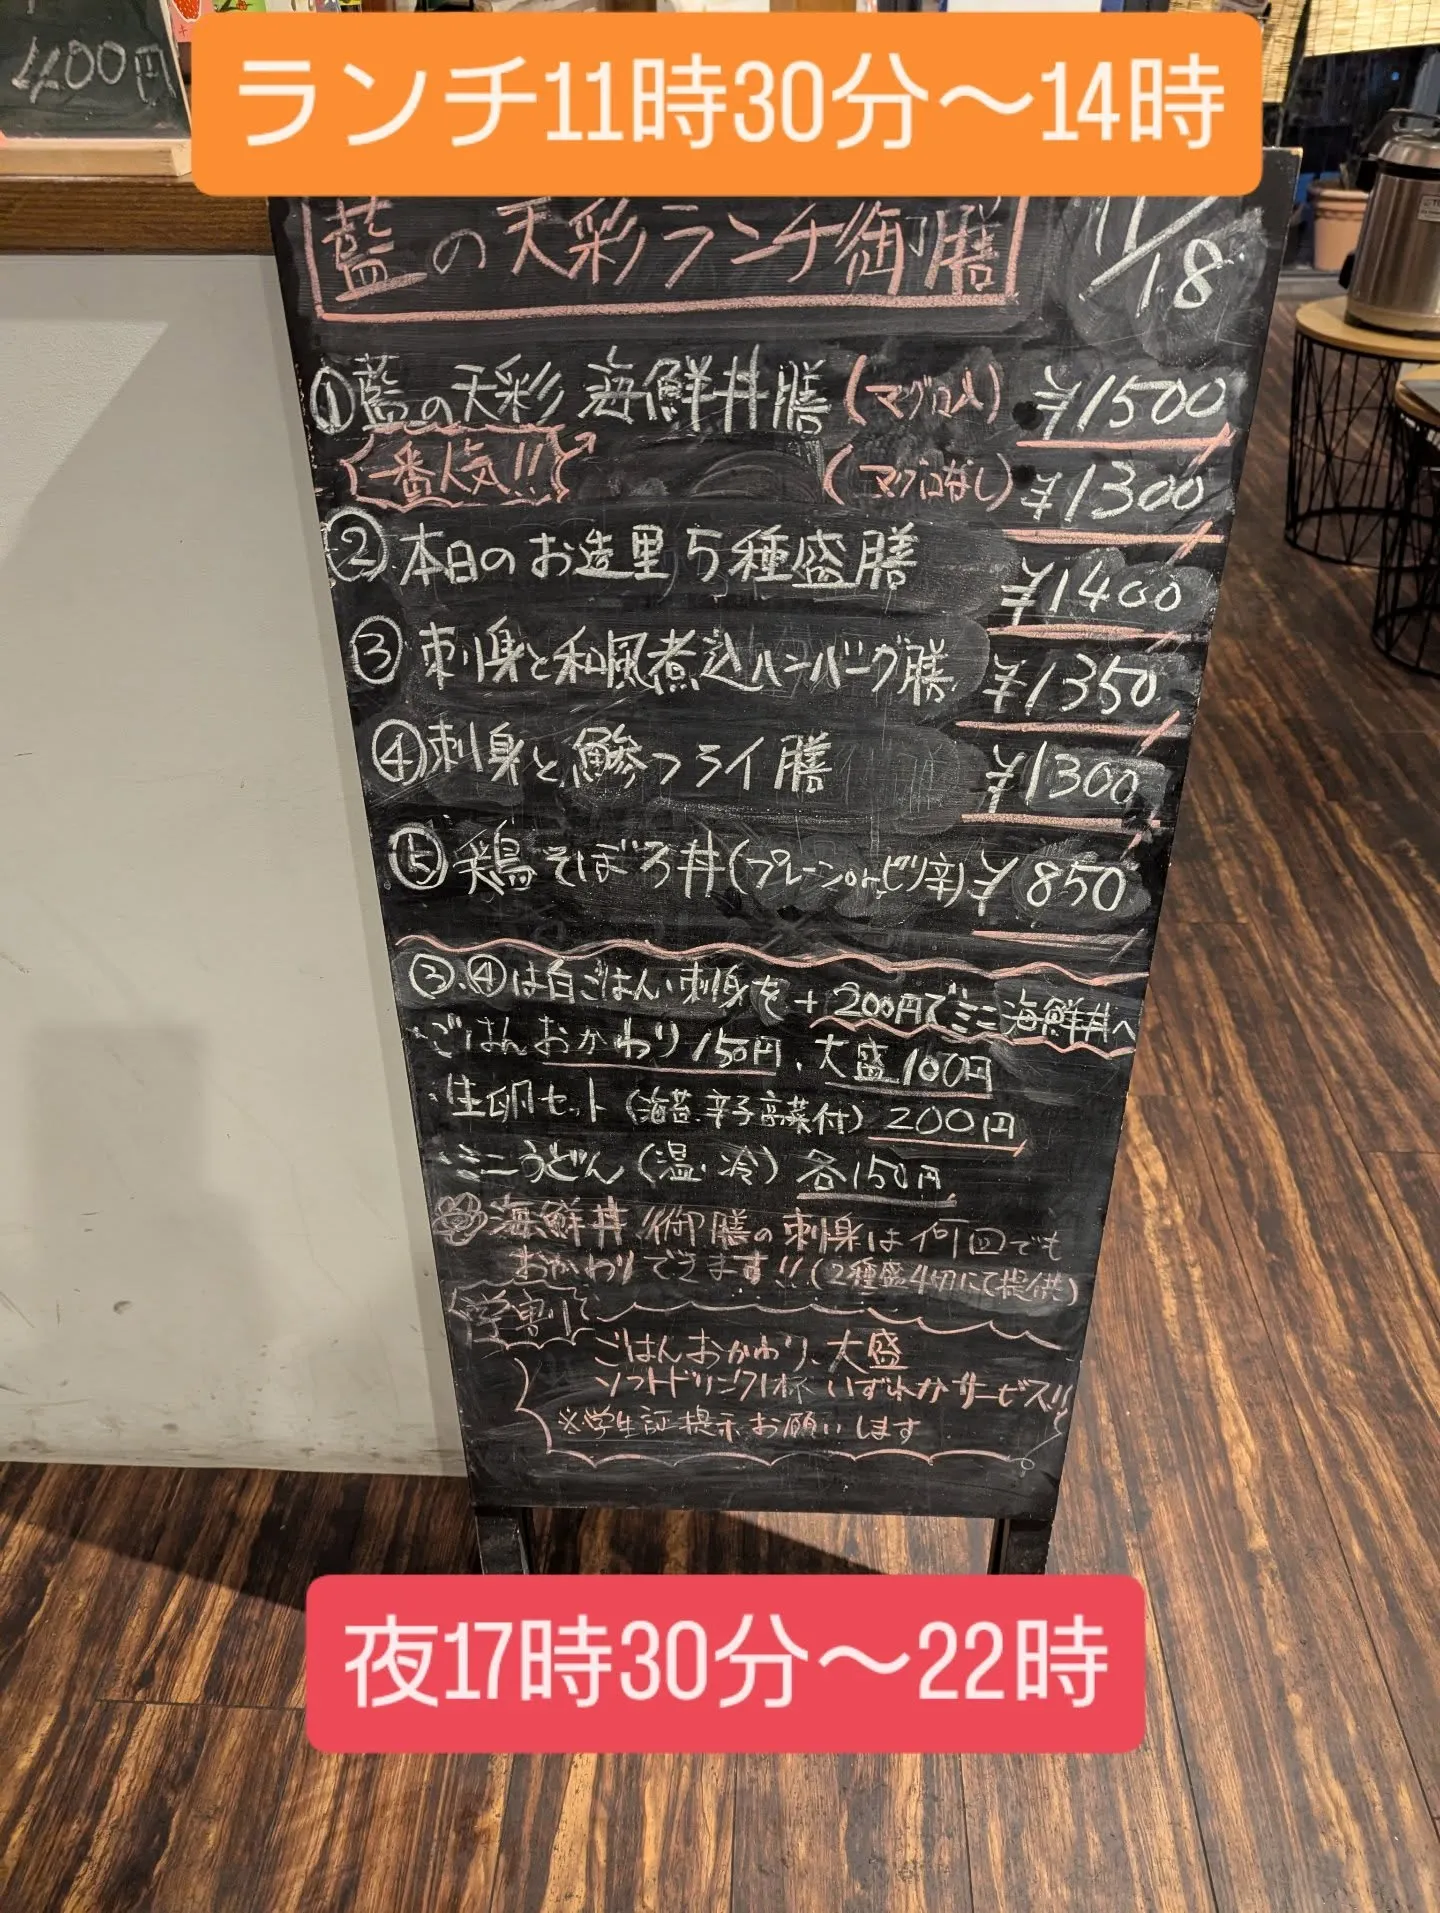 400円
ランチ11時30分〜14時
藍の天彩ランチ御膳 11/18
①藍の天彩 海鮮丼膳(マグロ入) ¥1500
一番人気!! (マグロなし) ¥1300
②本日のお造里5種盛膳 ¥1400
③刺身と和風煮込ハンバーグ膳 ¥1350
④刺身と鯵フライ膳 ¥1300
⑤鶏そぼろ丼(プレーンorピリ辛) ¥850
③、④は白ごはん、刺身を+200円でミニ海鮮丼へ
ごはんおかわり150円、大盛100円
生卵セット(海苔、辛子高菜付)200円
ミニうどん(温・冷)各150円
海鮮丼、御膳の刺身は何回でも
おかわりできます!!(2種盛4切にて提供)
学割
ごはんおかわり、大盛
ソフトドリンク1杯 いずれかサービス!!
※学生証提示お願いします
夜17時30分〜22時